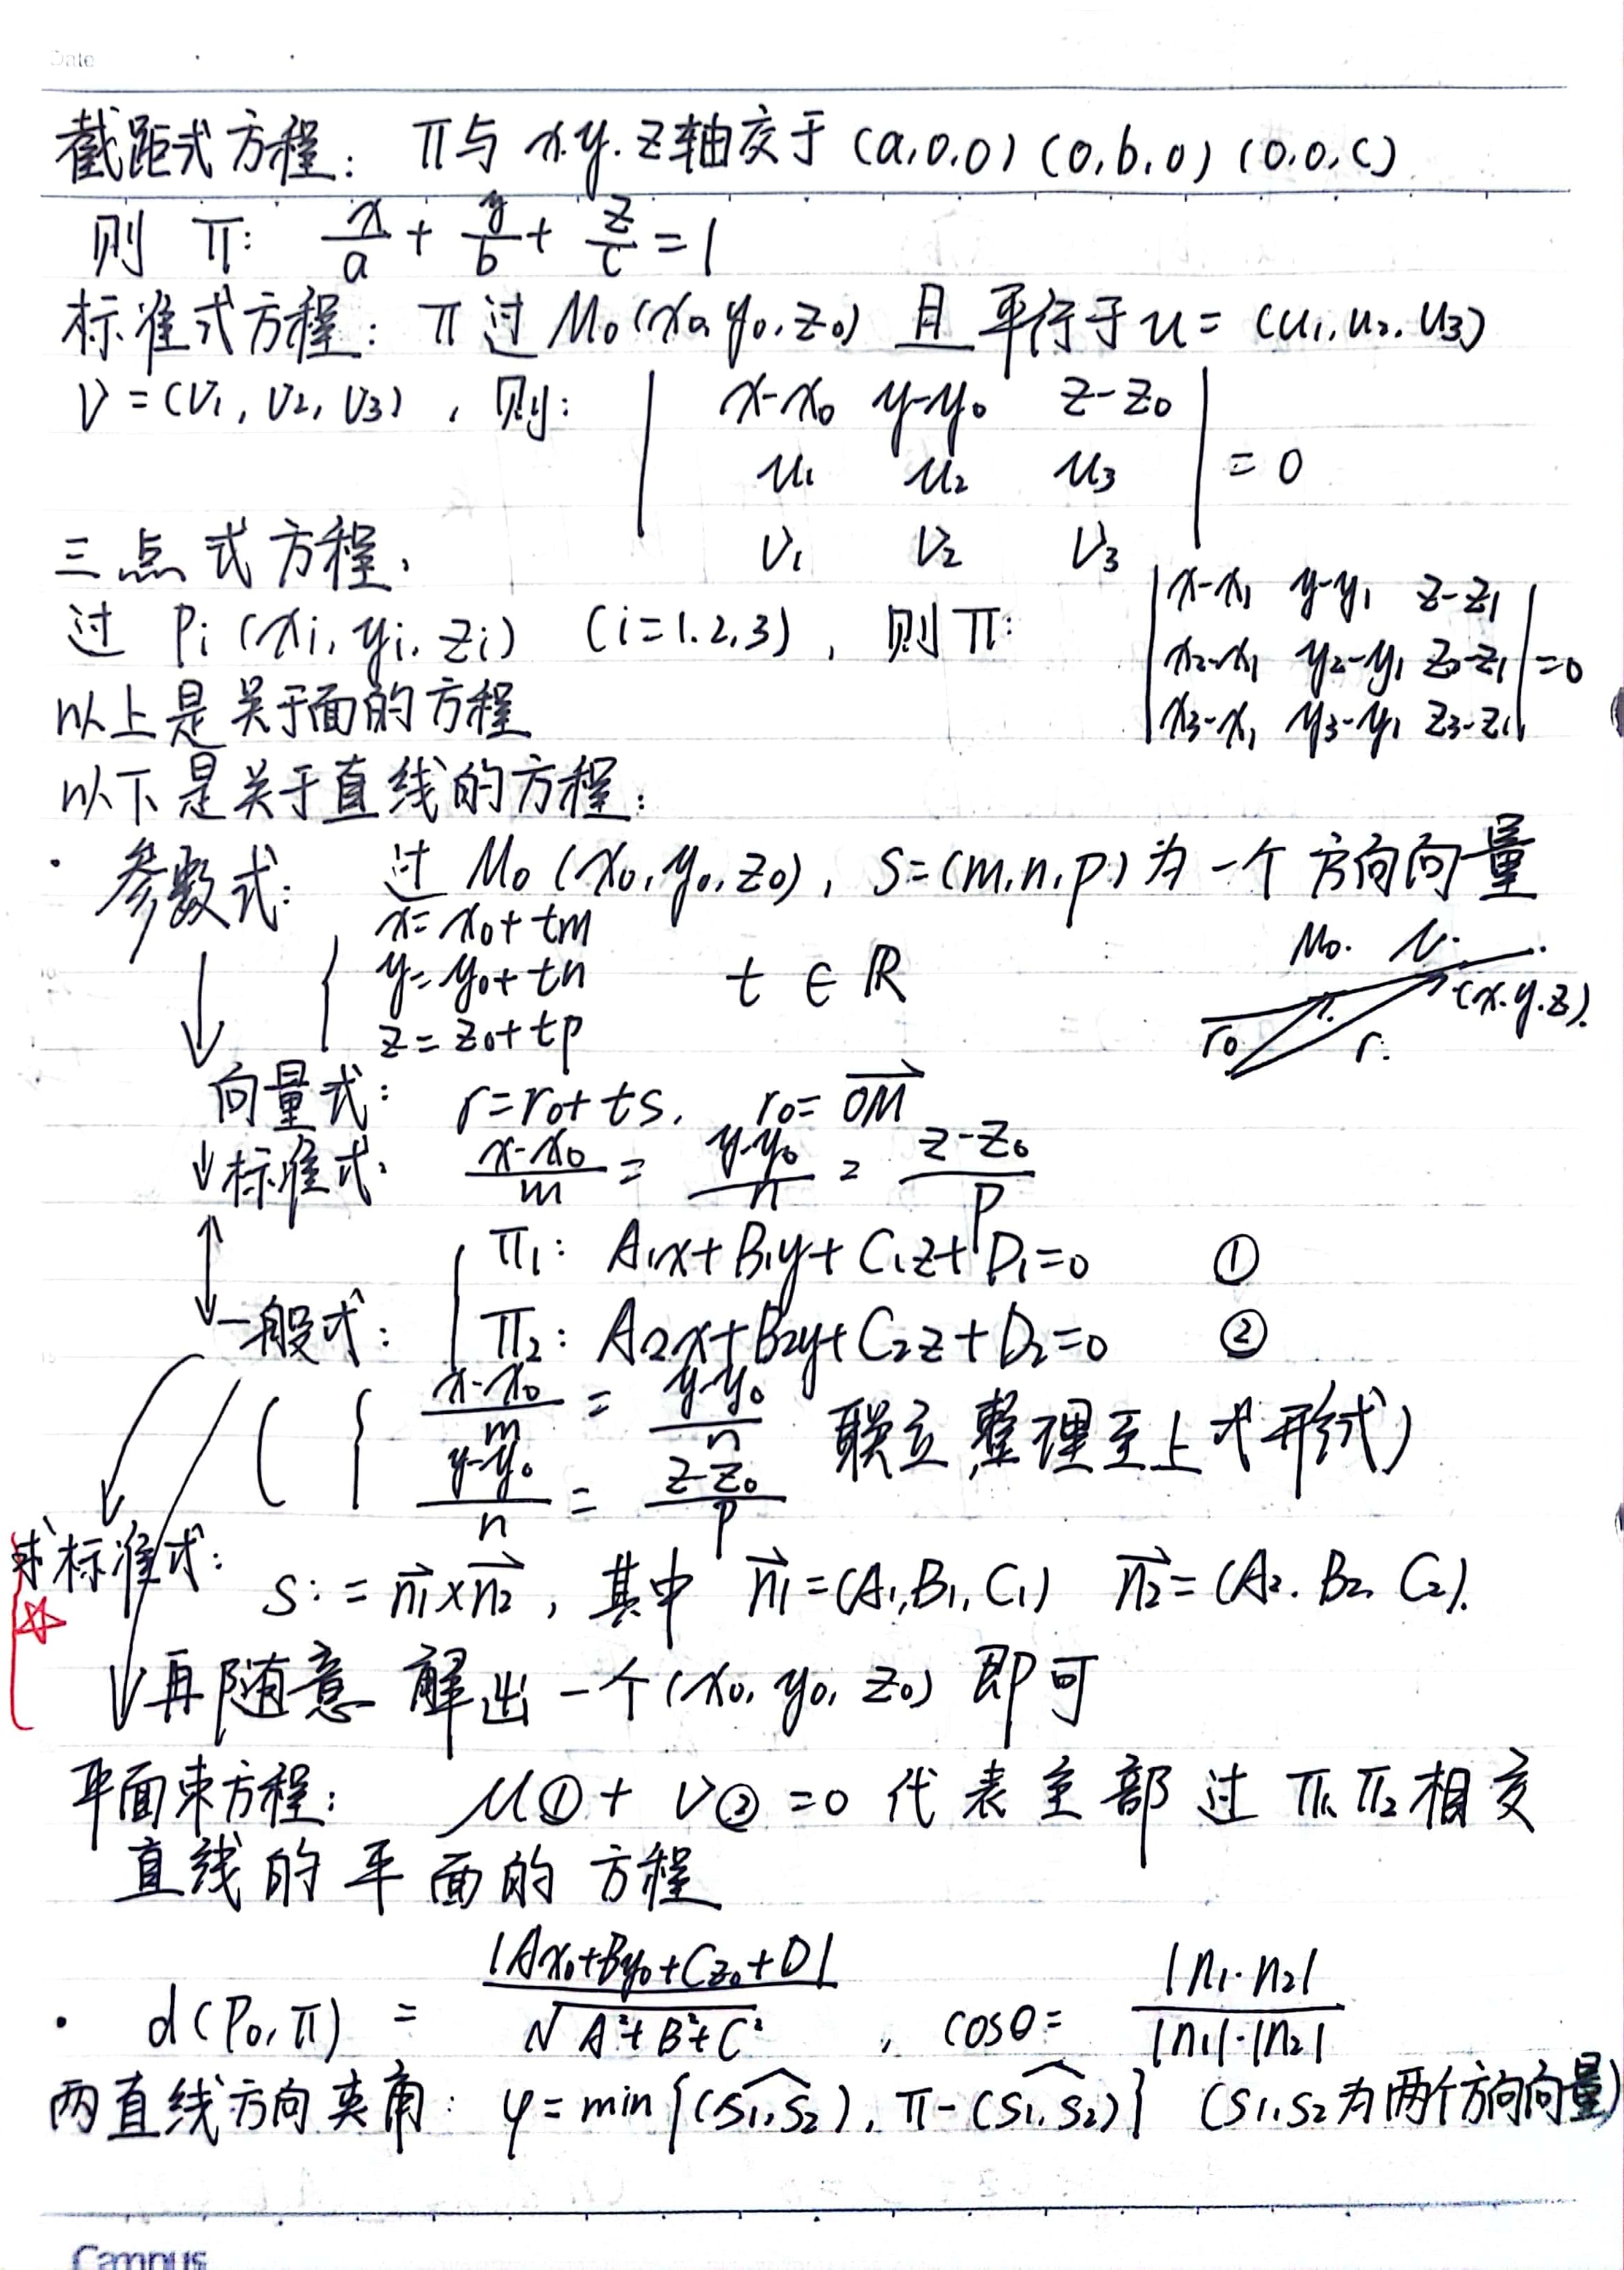 Date
截距式方程: π与 x.y.z轴交于 (a,0,0) (0,b,0) (0,0,c)
则 π: x/a + y/b + z/c = 1
标准式方程: π 过 M₀(x₀,y₀,z₀) 且 平行于 u = (u₁,u₂,u₃)
V = (V₁, V₂, V₃), 则: | x-x₀ y-y₀ z-z₀ |
| u₁ u₂ u₃ | = 0
| V₁ V₂ V₃ |
三点式方程.
过 Pi (xi, yi, zi) (i=1.2,3), 则 π: | x-x₁ y-y₁ z-z₁ |
| x₂-x₁ y₂-y₁ z₂-z₁ | = 0
| x₃-x₁ y₃-y₁ z₃-z₁ |
以上是关于面的方程
以下是关于直线的方程:
· 参数式: 过 M₀ (x₀,y₀,z₀), S=(m,n,p) 为一个方向向量
{ x = x₀+tm
y = y₀+tn t ∈ ℝ
z = z₀+tp
M₀.
(x.y.z).
r₀ r.
向量式: r=r₀+ts, r₀= OM→
标准式: (x-x₀)/m = (y-y₀)/n = (z-z₀)/p
{ π₁: A₁x+B₁y+C₁z+D₁=0 ①
一般式: π₂: A₂x+B₂y+C₂z+D₂=0 ②
( { (x-x₀)/m = (y-y₀)/n 联立,整理至上式形式)
(y-y₀)/n = (z-z₀)/p
求标准式:
S: = n₁→×n₂→, 其中 n₁→=(A₁,B₁,C₁) n₂→=(A₂.B₂,C₂).
再随意解出一个(x₀, y₀, z₀) 即可
平面束方程: μ① + ν② = 0 代表全部过 π₁,π₂相交
直线的平面的方程
· d(P₀,π) = |Ax₀+By₀+Cz₀+D| / √(A²+B²+C²) , cosθ= |n₁·n₂| / |n₁|·|n₂|
两直线方向夹角: φ = min {(S₁,S₂), π-(S₁,S₂)} (S₁,S₂为两个方向向量)
Campus